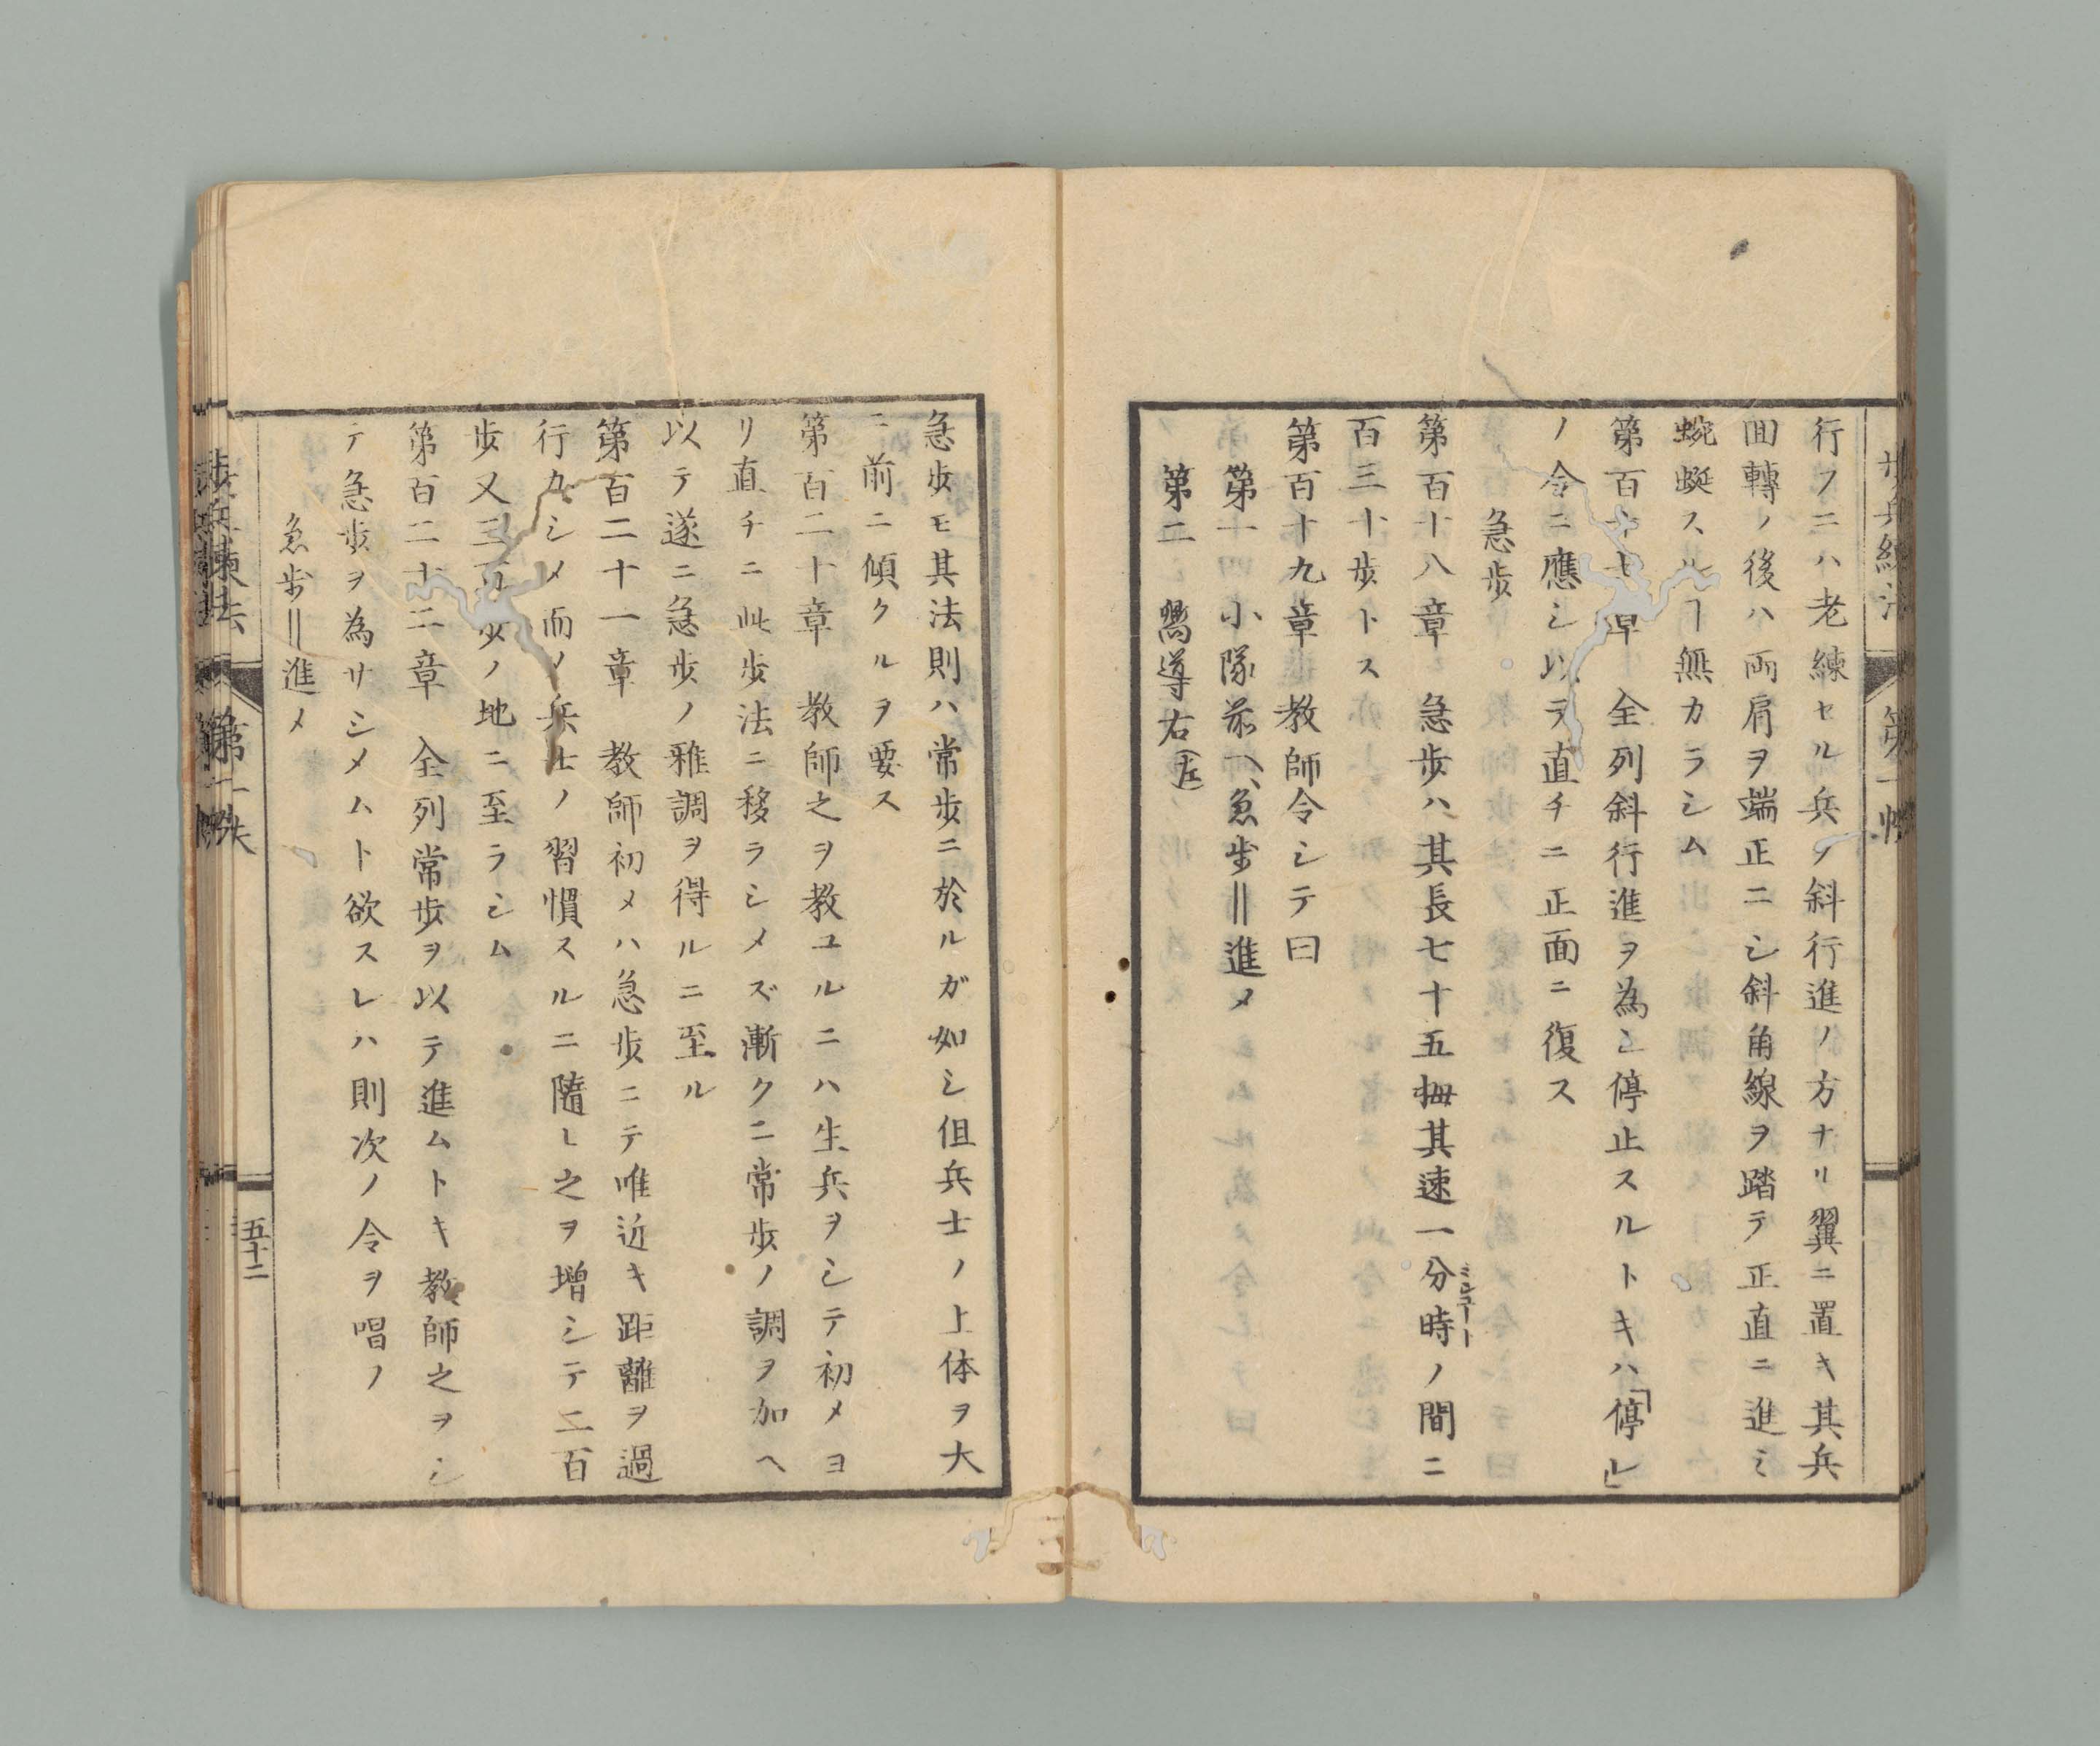 行フニハ老練セル兵ヲ斜行進ノ方ナリ翼ニ置キ其兵
囬轉ノ後ハ両肩ヲ端正ニシ斜角線ヲ踏テ正直ニ進ミ
蜿蜒スルヿ無カラシム
第百十七章 全列斜行進ヲ為シ停止スルトキハ「停レ」
ノ令ニ應シ以テ直チニ正面ニ復ス
急歩
第百十八章 急歩ハ其長七十五拇其速一分時ノ間ニ
ミニュート
百三十歩トス
第百十九章 教師令シテ曰
第一 小隊前ヘ、急歩‖進メ
第二 嚮導右(左)
急歩モ其法則ハ常歩ニ於ルガ如シ但兵士ノ上体ヲ大
ニ前ニ傾クルヲ要ス
第百二十章 教師之ヲ教ユルニハ生兵ヲシテ初メヨ
リ直チニ此歩法ニ移ラシメズ漸クニ常歩ノ調ヲ加ヘ
以テ遂ニ急歩ノ雅調ヲ得ルニ至ル
第百二十一章 教師初メハ急歩ニテ唯近キ距離ヲ過
行カシメ而メ兵士ノ習慣スルニ隨ヒ之ヲ増シテ二百
歩又三百歩ノ地ニ至ラシム
第百二十二章 全列常歩ヲ以テ進ムトキ教師之ヲシ
テ急歩ヲ為サシメムト欲スレハ則次ノ令ヲ唱ノ
急歩‖進メ
歩兵練法 第一帙
五十二